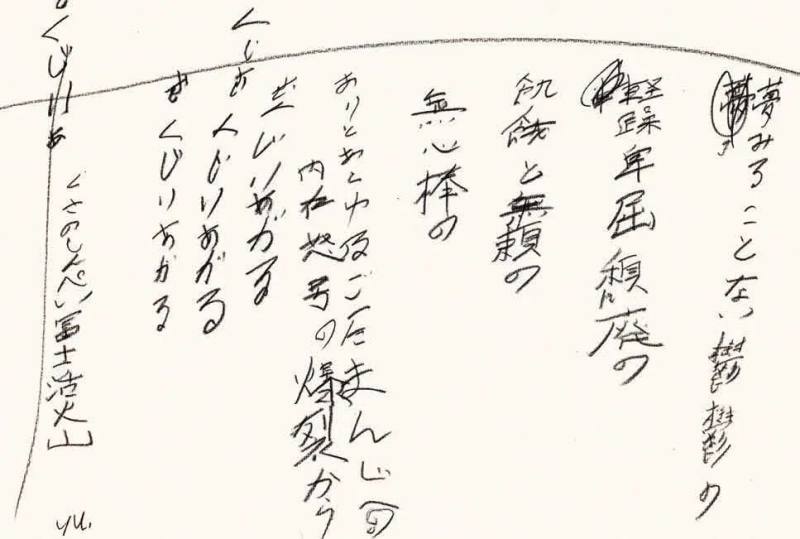 夢みることない鬱鬱の
軽躁卑屈頽廃の
飢餓と無頼の
無心棒の
ありとあらゆる
まんじの
内在怒号の爆裂から
ぎくじりあがる
ぎくじりあがる
ぎくじりあがる
ぎくじりあ
くさのしんぺい富士活火山